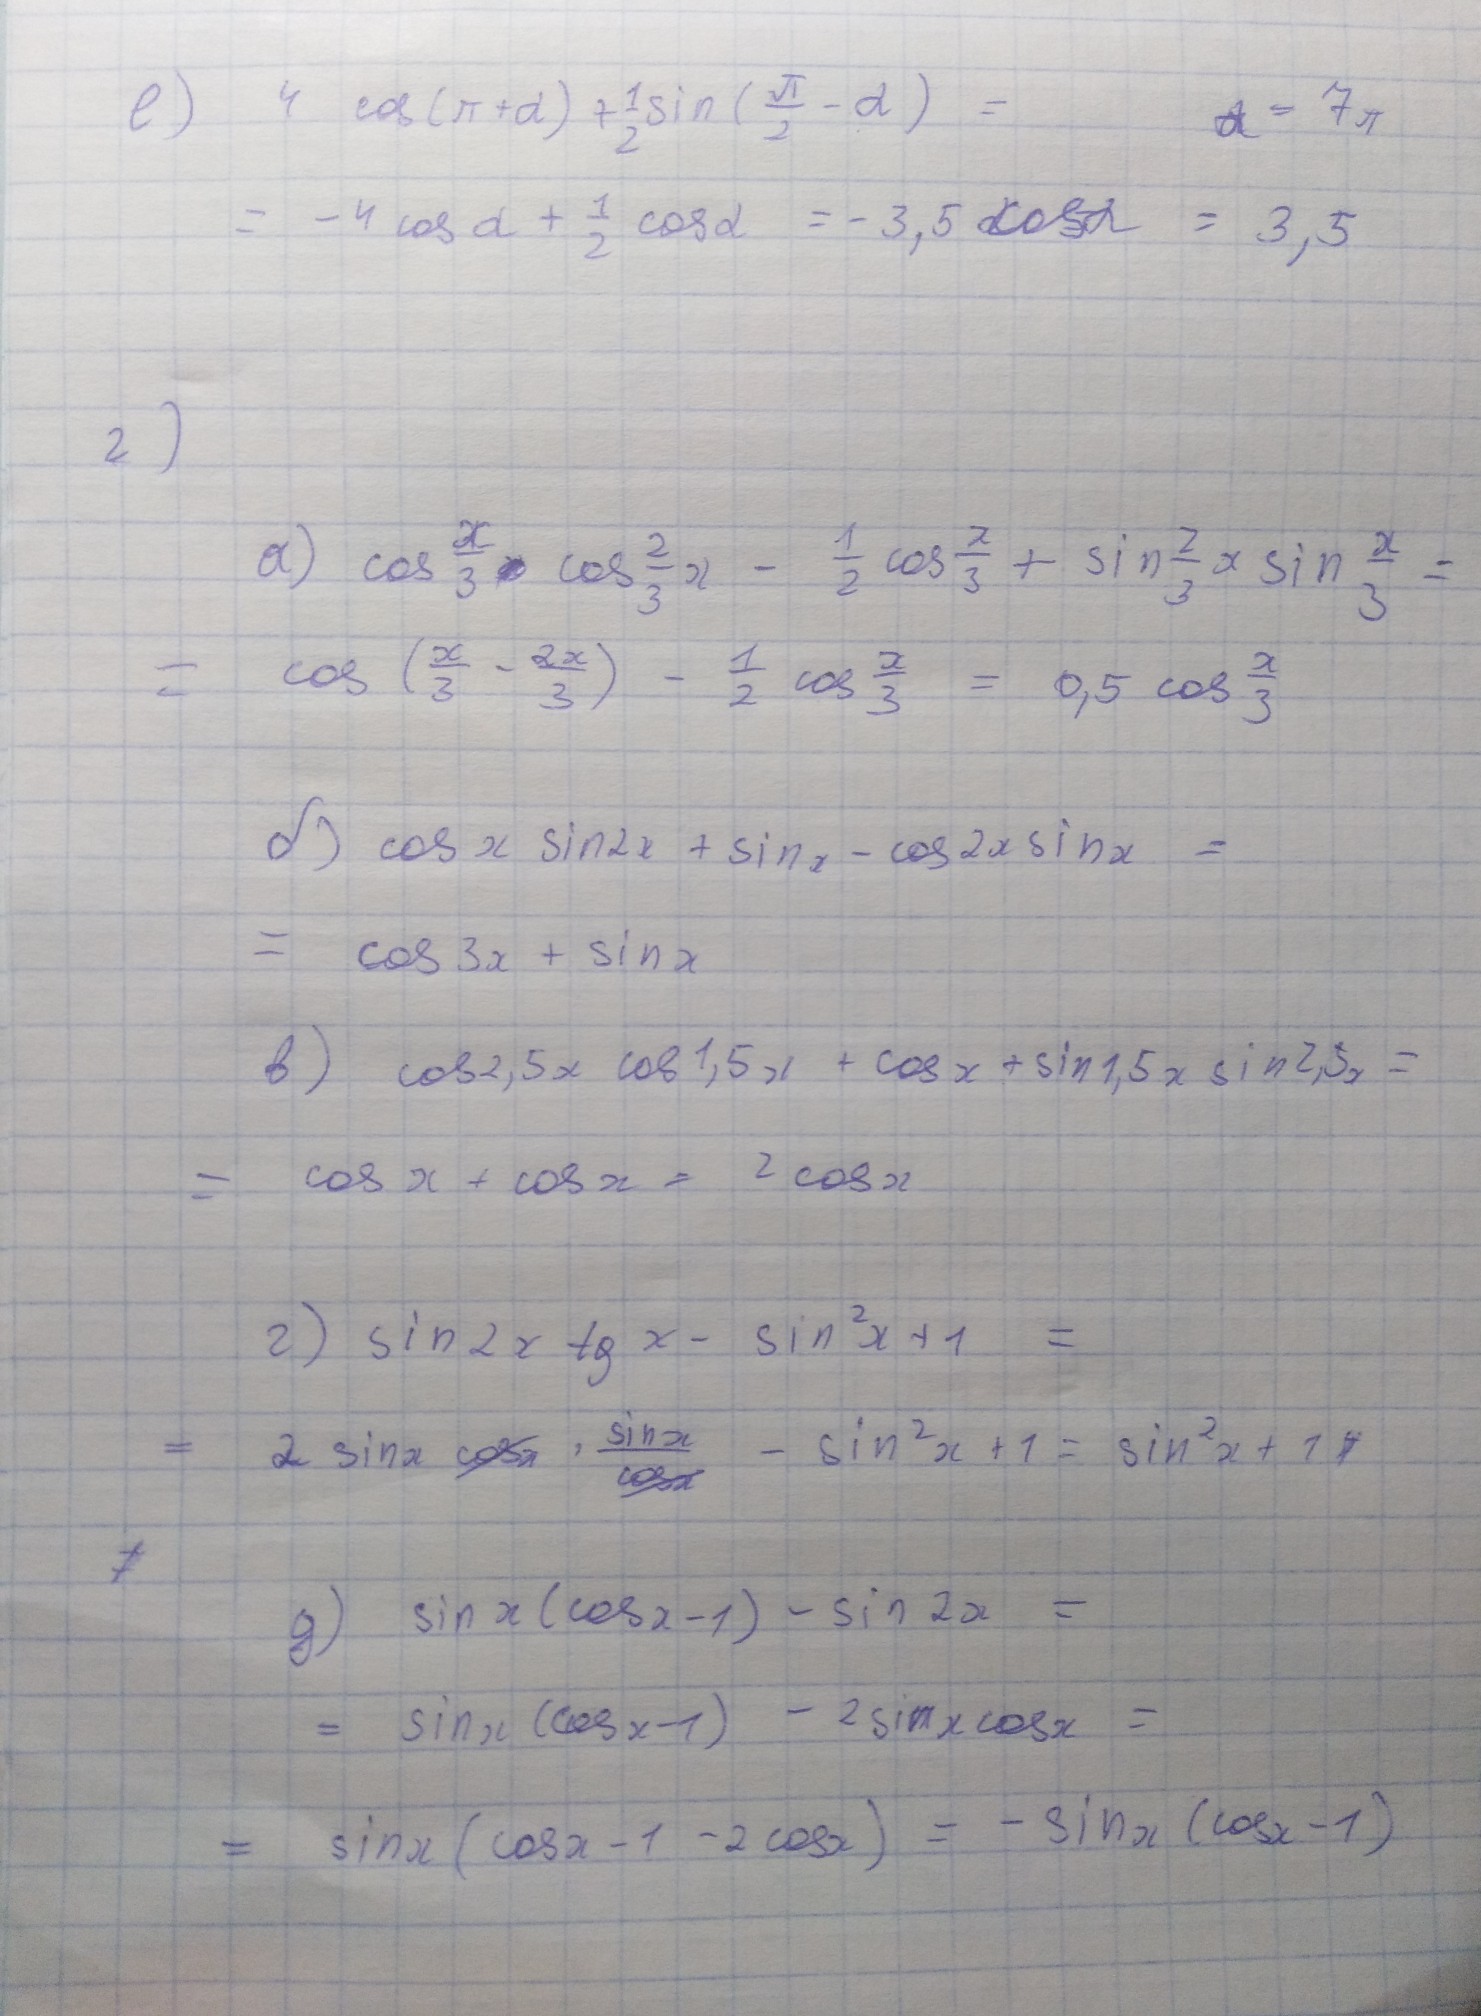 е) 4 cos(π+α) + 1/2 sin(π/2 - α) = α = 7π
= -4 cos α + 1/2 cos α = -3,5 cos α = 3,5
2)
а) cos x/3 · cos 2/3 x - 1/2 cos x/3 + sin 2/3 x sin x/3 =
= cos (x/3 - 2x/3) - 1/2 cos x/3 = 0,5 cos x/3
б) cos x sin2x + sin x - cos2x sin x =
= cos 3x + sin x
в) cos2,5x cos1,5x + cos x + sin1,5x sin2,5x =
= cos x + cos x = 2 cos x
г) sin 2x tg x - sin²x + 1 =
= 2 sin x cos x · sin x/cos x - sin²x + 1 = sin²x + 1
д) sin x (cos x - 1) - sin 2x =
= sin x (cos x - 1) - 2 sin x cos x =
= sin x (cos x - 1 - 2 cos x) = - sin x (cos x - 1)